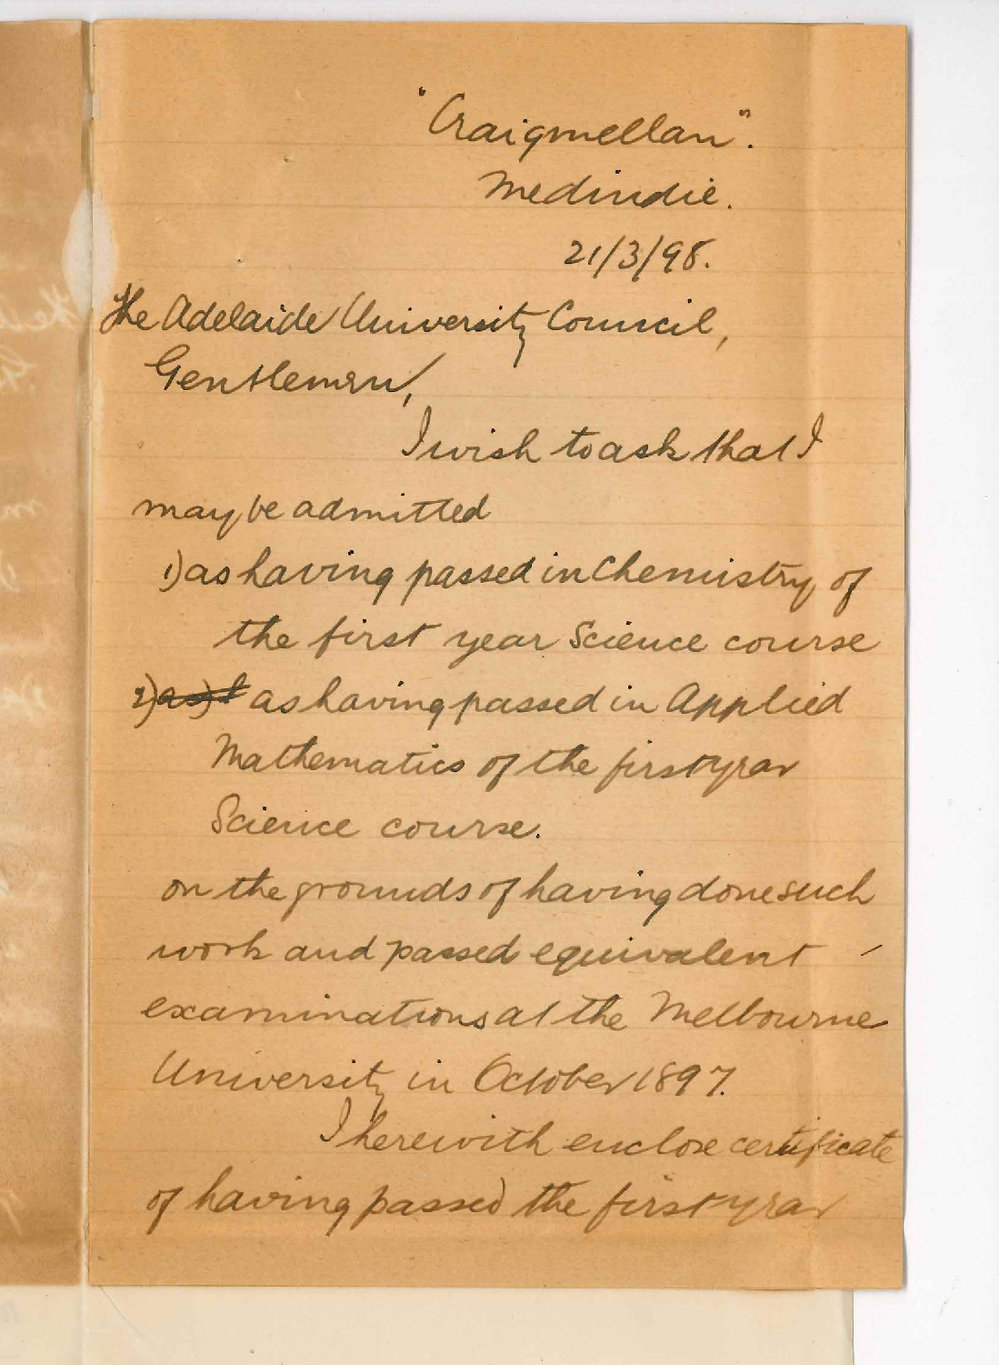 "Craigmellan".
Medindie.
21/3/98.
The Adelaide University Council,
Gentlemen,
I wish to ask that I
may be admitted
1) as having passed in Chemistry of
the first year Science course
2) as having passed in Applied
Mathematics of the first year
Science course.
on the grounds of having done such
work and passed equivalent
examinations at the Melbourne
University in October 1897.
I herewith enclose certificate
of having passed the first year